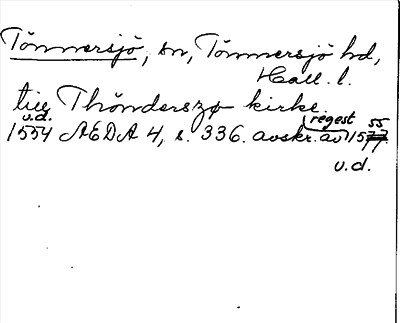 Tönnersjö, sn, Tönnersjö hd,
Hall. l.
till Thönderszø kirke.
u.d. regest 55
1554 AEDA 4, s. 336. avskr. av 1577.
u.d.